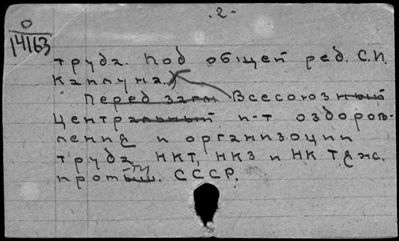 -2-
О
14163
труда. Под общей ред. С.И.
Каплуна.)
Перед загл Всесоюзный
Центральный и-т оздоров-
ления и организации
труда НКТ, НКЗ и НК Тяж.
пром. СССР.